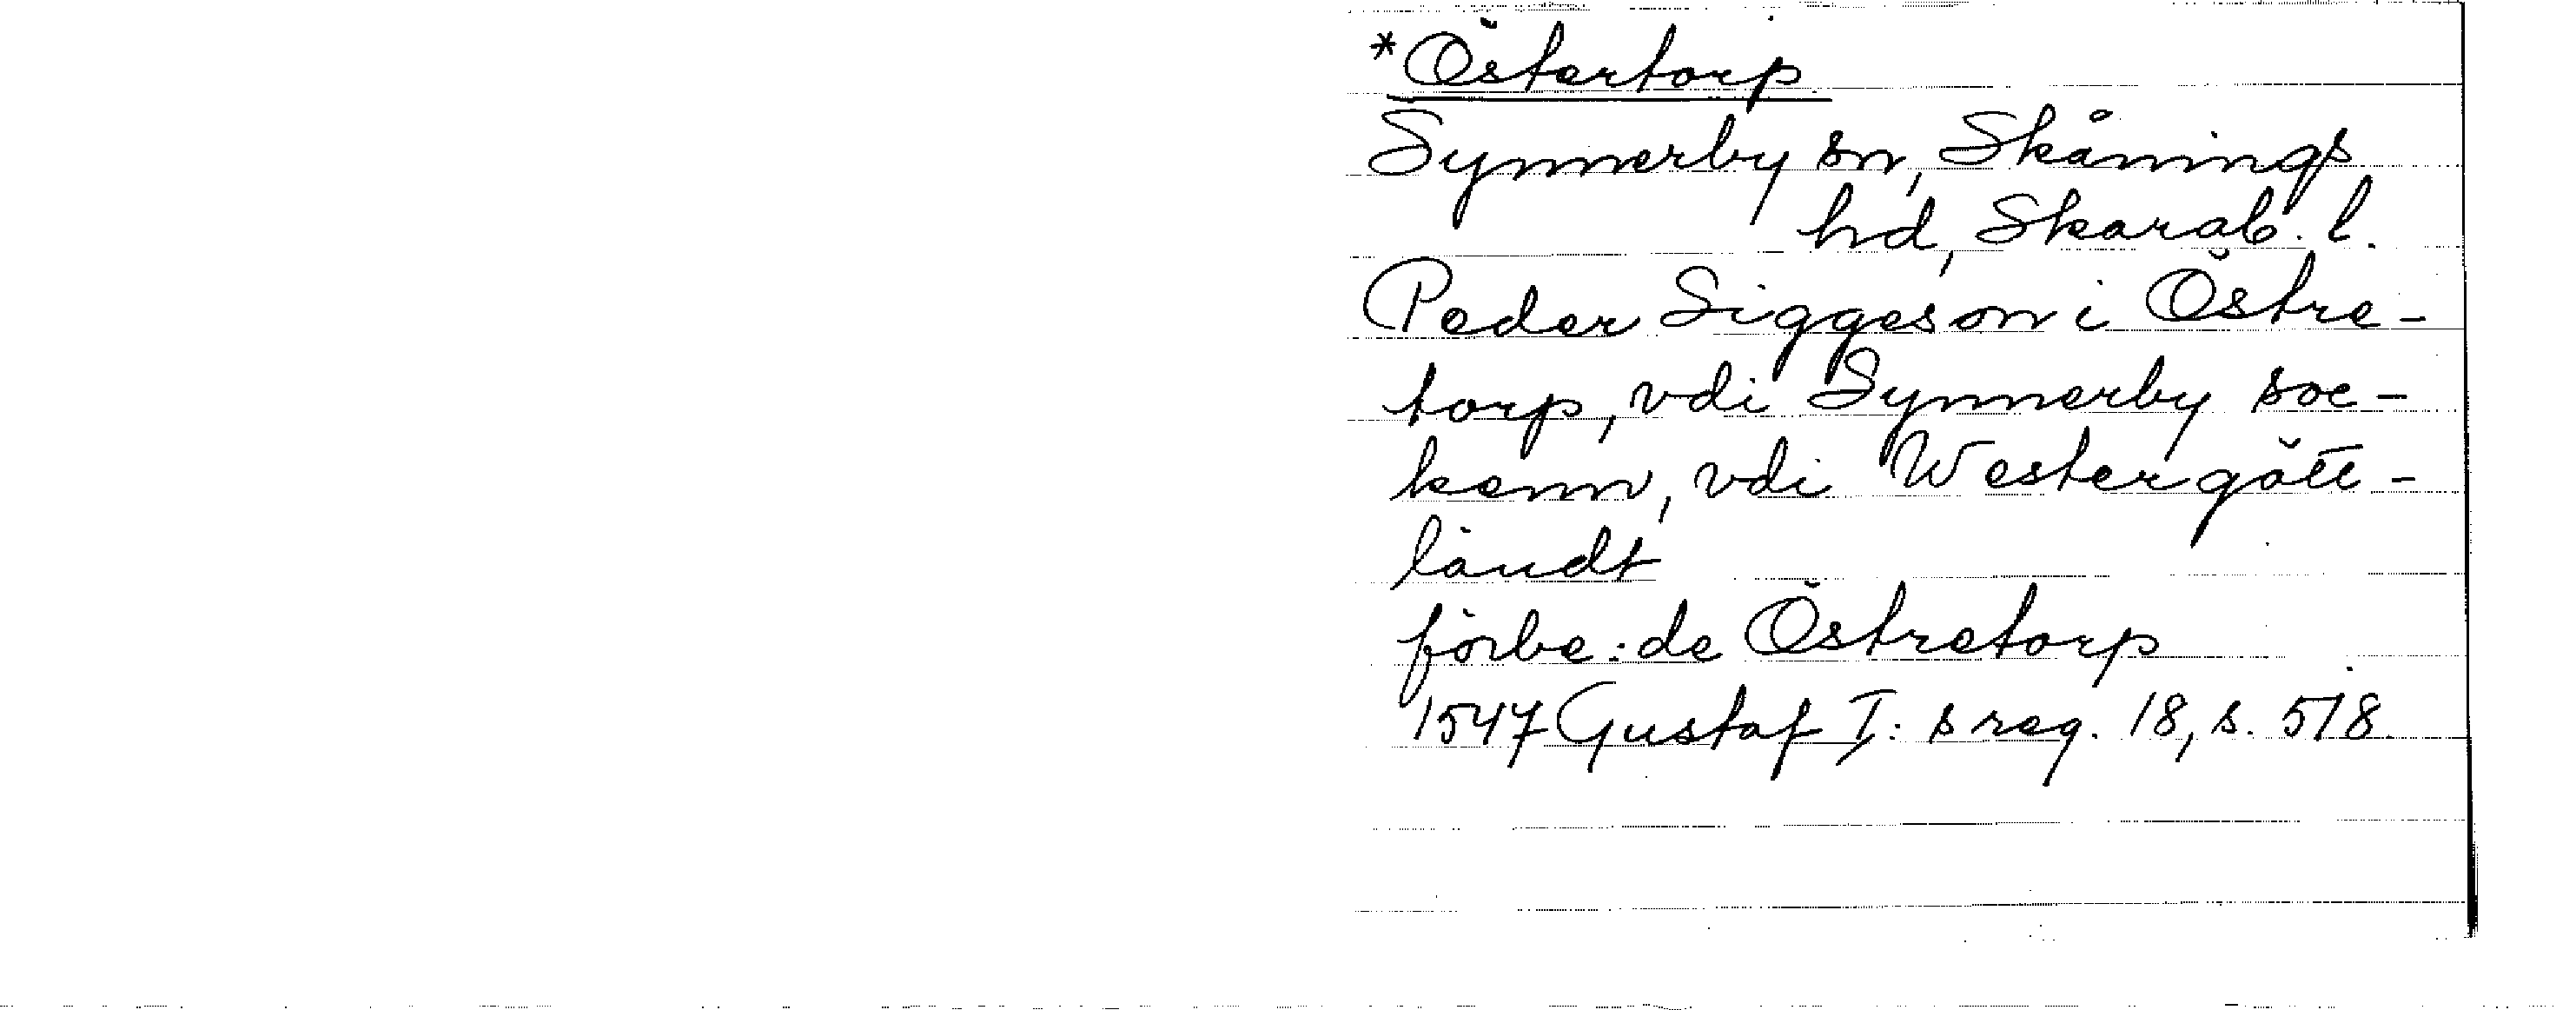 *Östertorp
Synnerby sn, Skånings
hd, Skarab. l.
Peder Siggeson i Östre-
torp, vdi Synnerby soc-
kenn, vdi Westergött-
landt
förbe:de Östretorp
1547 Gustaf I:s reg. 18, s. 518.